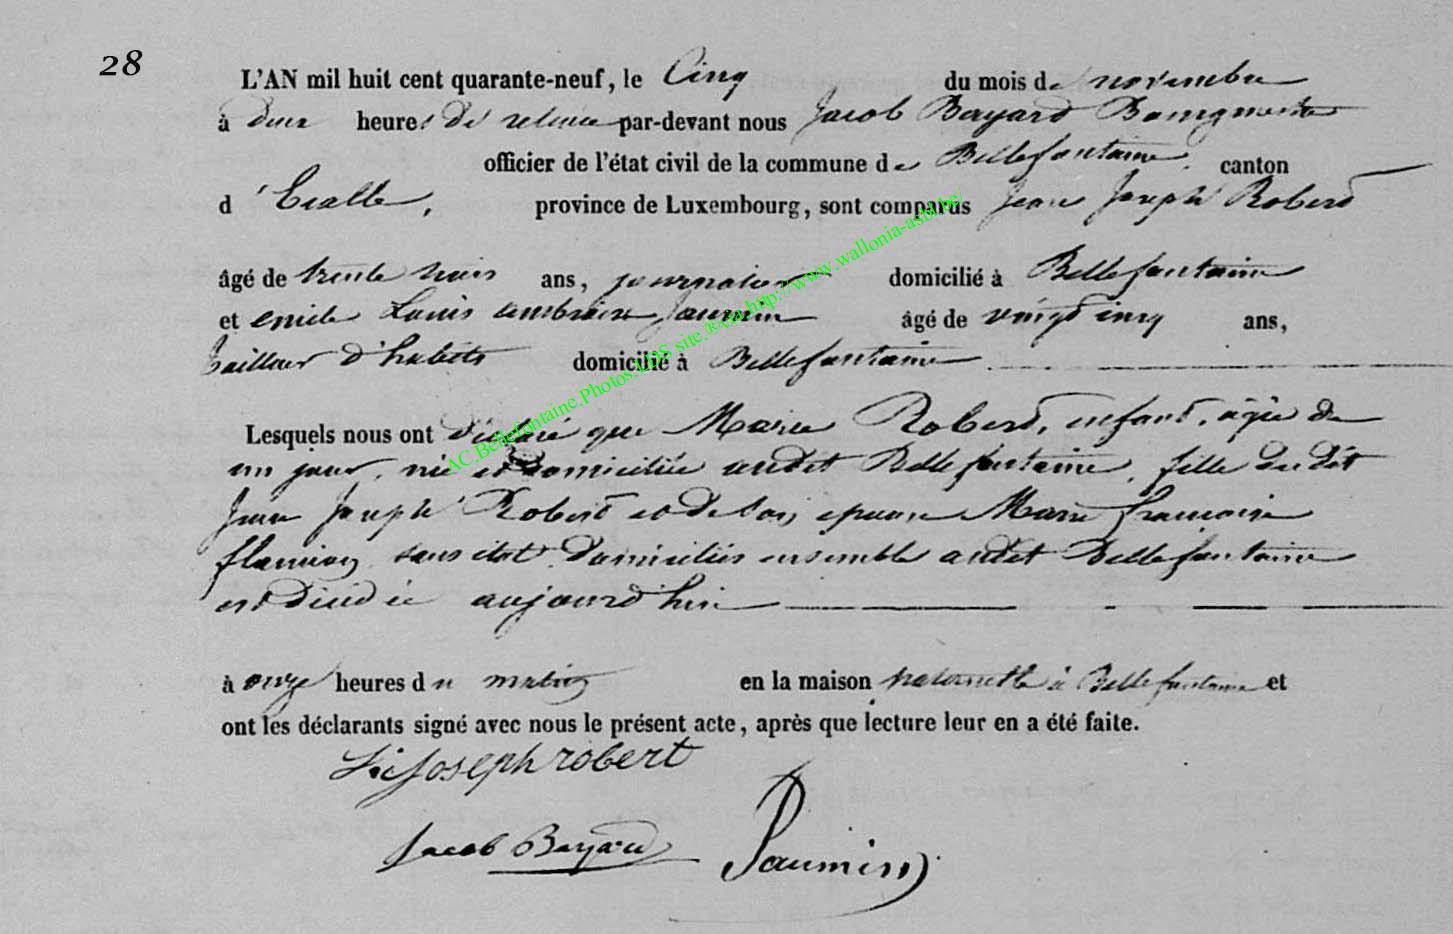 28
L'AN mil huit cent quarante-neuf, le Cinq du mois de novembre
à deux heures de relevée par-devant nous Jacob Bayard Bourgmestre
officier de l'état civil de la commune de Bellefontaine canton
d'Etalle, province de Luxembourg, sont comparus Jean Joseph Robert
âgé de trente ans, journalier domicilié à Bellefontaine
et Louis ambroise âgé de vingt cinq ans,
tailleur d'habits domicilié à Bellefontaine
Lesquels nous ont déclaré que Marie Robert, enfant, âgée de
un jour, née et domiciliée audit Bellefontaine, fille dudit
Jean Joseph Robert et de son épouse Marie françoise
sans état domiciliés ensemble audit Bellefontaine
est décédée aujourd'hui
à onze heures du matin en la maison paternelle à Bellefontaine et
ont les déclarants signé avec nous le présent acte, après que lecture leur en a été faite.
Joseph robert
Jacob Bayard
AC.Bellefontaine.Photos.LDS site.®.via.http://www.wallonia-asbl.be/